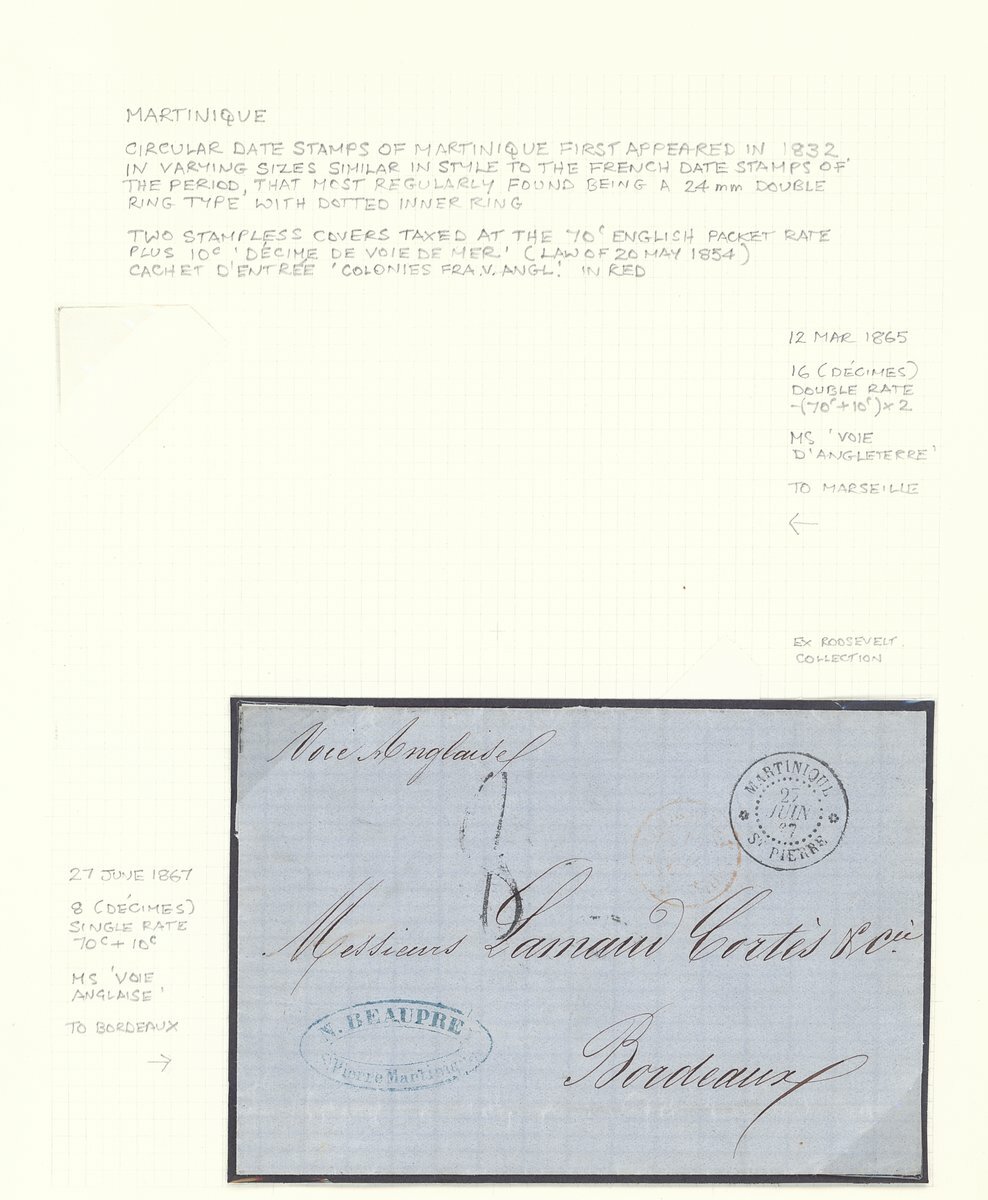 MARTINIQUE
CIRCULAR DATE STAMPS OF MARTINIQUE FIRST APPEARED IN 1832
IN VARYING SIZES SIMILAR IN STYLE TO THE FRENCH DATE STAMPS OF
THE PERIOD, THAT MOST REGULARLY FOUND BEING A 24mm DOUBLE
RING TYPE WITH DOTTED INNER RING
TWO STAMPLESS COVERS TAXED AT THE 70c ENGLISH PACKET RATE
PLUS 10c 'DÉCIME DE VOIE DE MER' (LAW OF 20 MAY 1854)
CACHET D'ENTRÉE 'COLONIES FRA.V.ANGL.' IN RED
12 MAR 1865
16 (DÉCIMES)
DOUBLE RATE
-(70c+10c)×2
MS 'VOIE
D'ANGLETERRE'
TO MARSEILLE
←
EX ROOSEVELT
COLLECTION
27 JUNE 1867
8 (DÉCIMES)
SINGLE RATE
70c+10c
MS 'VOIE
ANGLAISE'
TO BORDEAUX
→
Voie Anglaise
8
MARTINIQUE
27
JUIN
67
ST PIERRE
Messieurs Lamaud Cortès & Cie
Bordeaux
N. BEAUPRE
St Pierre Martinique